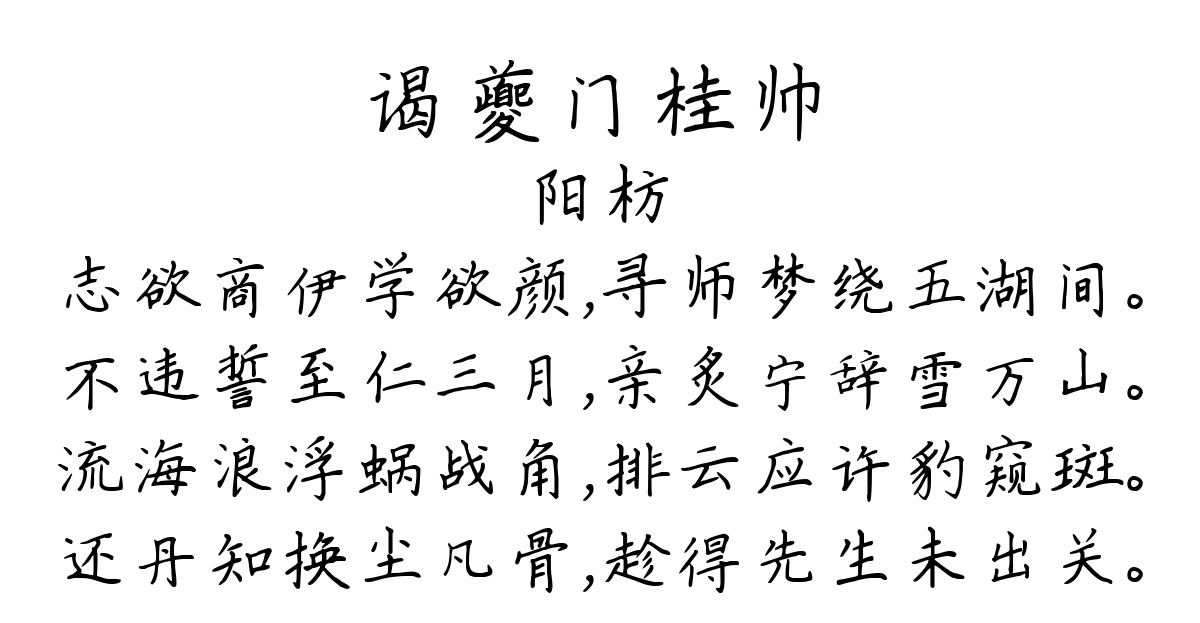 谒夔门桂帅
阳枋
志欲商伊学欲颜,寻师梦绕五湖间。
不违誓至仁三月,亲炙宁辞雪万山。
流海浪浮蜗战角,排云应许豹窥斑。
还丹知换尘凡骨,趁得先生未出关。